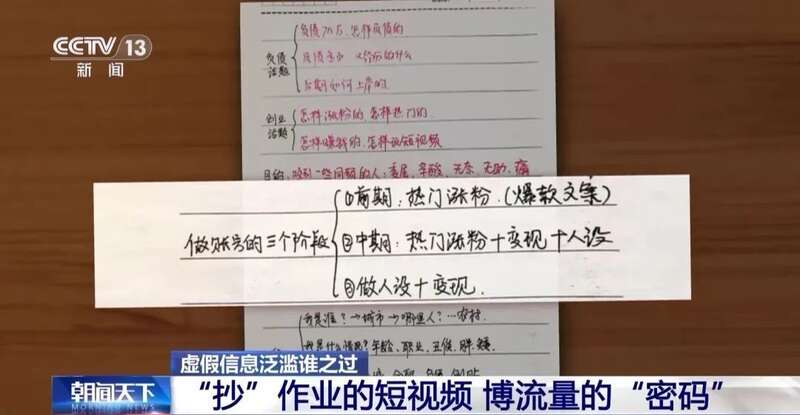 CCTV 13
新闻
负债话题
负债70万,怎样负债的
后期如何上岸的
创业话题
怎样涨粉的,怎样热门的
怎样赚钱的,怎样做短视频
做账号的三个阶段
①前期:热门涨粉.(爆款文案)
②中期:热门涨粉+变现+人设
③做人设+变现.
我是谁?→城市→哪里人?…农村
年龄、职业、丑、胖、矮
虚假信息泛滥谁之过
朝闻天下
MORNING NEWS
“抄”作业的短视频 博流量的“密码”